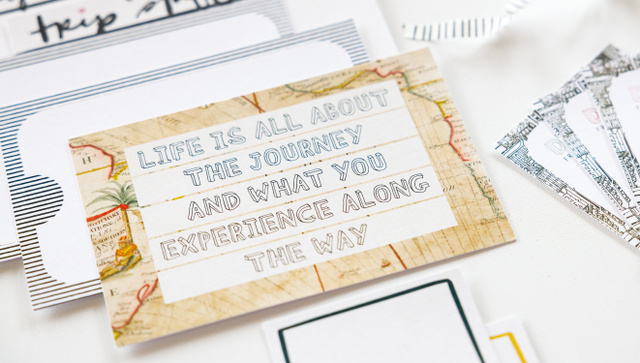 trip
LIFE IS ALL ABOUT
THE JOURNEY
AND WHAT YOU
EXPERIENCE ALONG
THE WAY